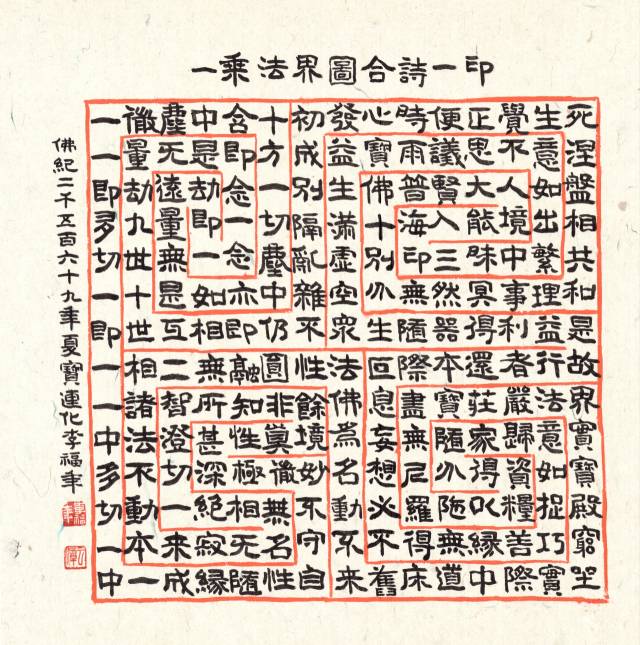 一乘法界圖合詩一印
一微塵中含十初發心時便正覺生死
一量无是即方成益寶雨議思不意涅
即劫遠劫念一別生佛普賢大人如盤
多九量即一切隔滿十海入能境出相
切世無一念塵亂虛別印三昧中繁共
一十是如亦中雜空分無然冥事理和
即世互相即仍不衆生隨器得利益是
一相二無融圓性法叵際本還者行故
一諸智所知非餘佛息盡寶莊嚴法界
中法證甚性真境為妄無隨家歸意實
多不切深極微妙名想尼分得資如寶
切動一絕相無不動必羅陀以糧捉殿
一本來寂无名守不不得無緣善巧窮
中一成緣隨性自來舊床道中際實坐
佛紀二千五百六十九年夏寶蓮化李福年